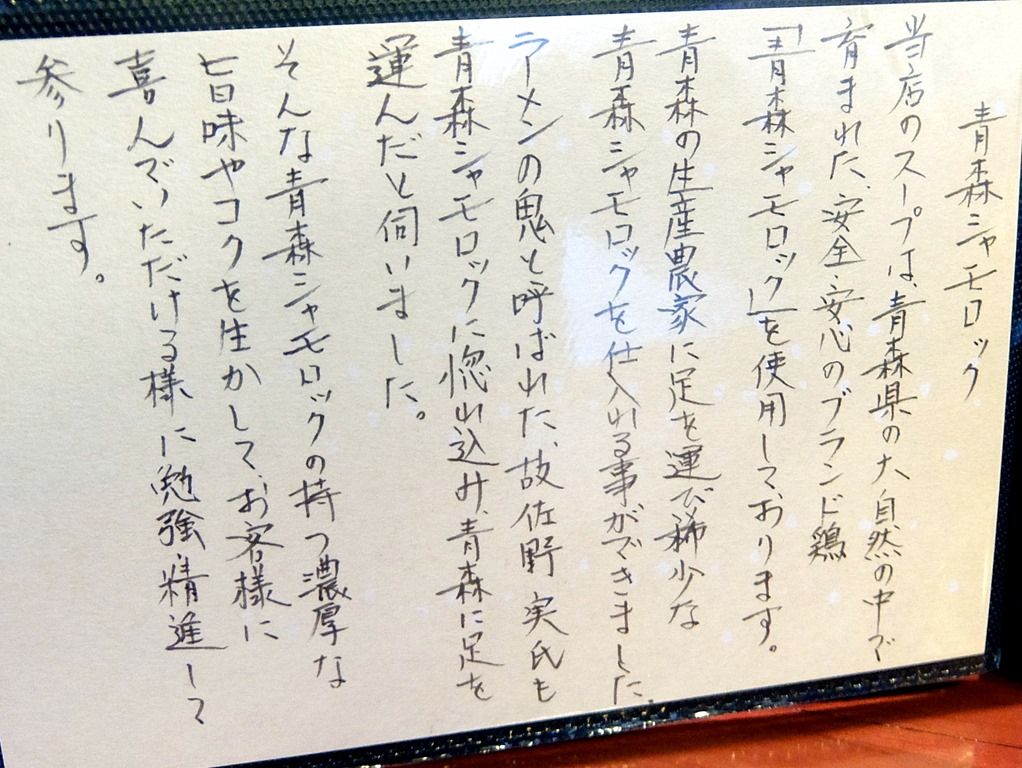 青森シャモロック
当店のスープは、青森県の大自然の中で
育まれた、安全・安心のブランド鶏
「青森シャモロック」を使用して、おります。
青森の生産農家に足を運び稀少な
青森シャモロックを仕入れる事ができました。
ラーメンの鬼と呼ばれた、故佐野 実氏も
青森シャモロックに惚れ込み、青森に足を
運んだと伺いました。
そんな青森シャモロックの持つ濃厚な
旨味やコクを生かして、お客様に
喜んでいただける様に勉強・精進して
参ります。